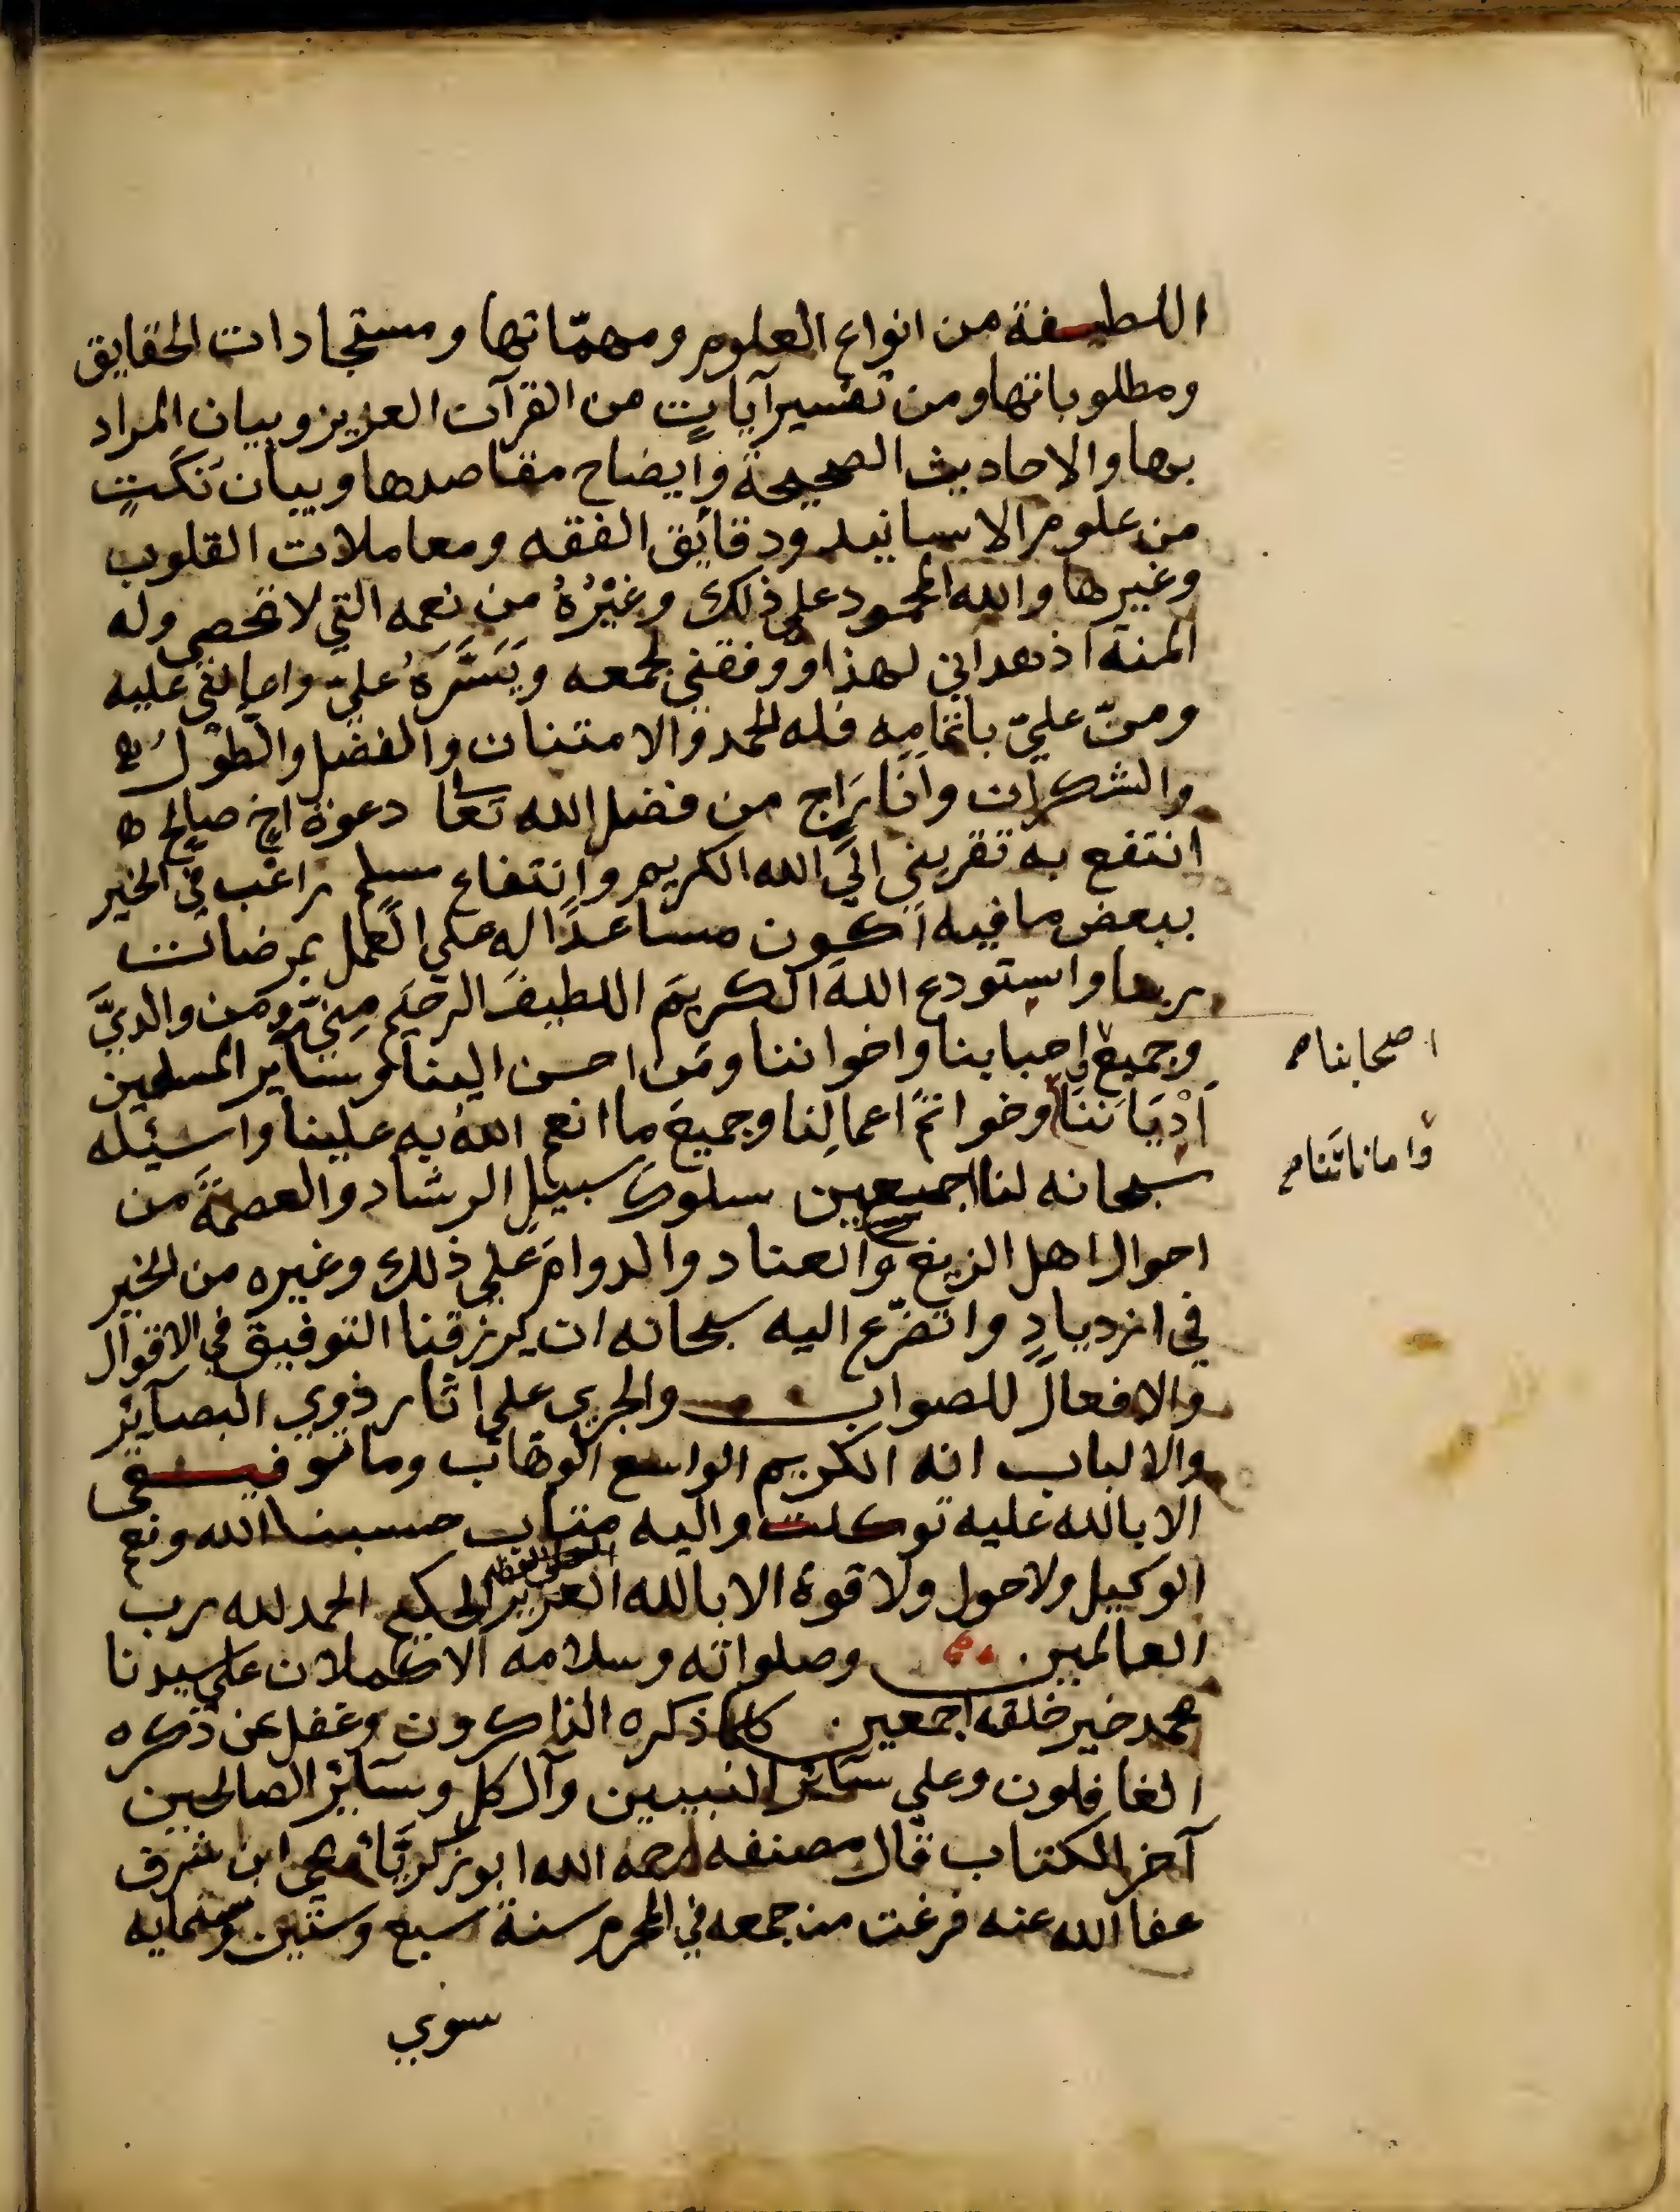 اللطيفة من انواع العلوم ومهمّاتها ومستجادات الحقايق
ومطلوباتها ومن تفسير آياتٍ من القرآن العزيز وبيان المراد
بها والاحاديث الصحيحة وايضاح مقاصدها وبيان نكتٍ
من علوم الاسانيد ودقائق الفقه ومعاملات القلوب
وغيرها والله المحمود على ذلك وغَيْرُهُ من نعمه التي لا تحصى وله
المنة اذ هداني لهذا ووفقني لجمعه ويَسَّرَهُ عليّ واعانني عليه
ومنّ عليّ باتمامِه فله الحمد والامتنان والفضل والطَوْلُ
والشكران وانا رَاجٍ من فضل الله تعالى دعوة اخ صالح
انتفع به تقربني الى الله الكريم وانتفاع مسلم راغب في الخير
ببعض ما فيه اكون مساعدًا له على العمل بمرضات
ربها واستودع اللهَ الكريمَ اللطيفَ الرحيَم مِنيّ ومن والديَّ
وجميع احبابنا واخواننا ومَن احسن الينا وسائر المسلمين
اَدْيَاننَا وخواتمَ اعمالِنا وجميعَ ما انعم اللهُ به علينا واسئله
سبحانه لنا اجمعين سلوك سبيل الرشاد والعصمةَ من
احوال اهل الزيغ والعناد والدوامَ على ذلك وغيره من الخير
في ازديادٍ واتضرّع اليه سبحانه ان يرزقنا التوفيق في الاقوال
والافعال للصواب والجري على آثار ذوي البصآئر
والالباب انه الكريم الواسع الوهّاب وما توفيـــقى
الا بالله عليه توكلت واليه متاب حسبنا الله ونعم
الوكيل ولا حول ولا قوة الا بالله العلى العظيم العزيز الحكيم الحمد لله رب
العالمين وصلواته وسلامه الاكملان على سيدنا
محمد خير خلقه اجمعين كلما ذكره الذاكرون وغفل عن ذكره
الغافلون وعلى سآئر النبيين وآل كل وسآئر الصالحين
آخر الكتاب قال مصنفه رحمه الله ابو زكريّاء يحيى ابن شرف
عفا الله عنه فرغت من جمعه في المحرم سنة سبع وستين وستمايه
سوي
اصحابنا صح
وَاماناتنا صح